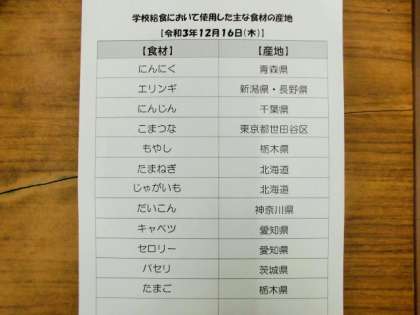 学校給食において使用した主な食材の産地
【令和3年12月16日(木)】
【食材】 【産地】
にんにく 青森県
エリンギ 新潟県・長野県
にんじん 千葉県
こまつな 東京都世田谷区
もやし 栃木県
たまねぎ 北海道
じゃがいも 北海道
だいこん 神奈川県
キャベツ 愛知県
セロリー 愛知県
パセリ 茨城県
たまご 栃木県